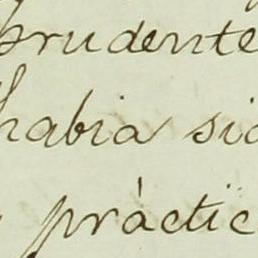 prudente
habia sid
pràctic